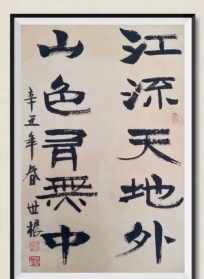 江流天地外
山色有無中
辛丑年春 世楊